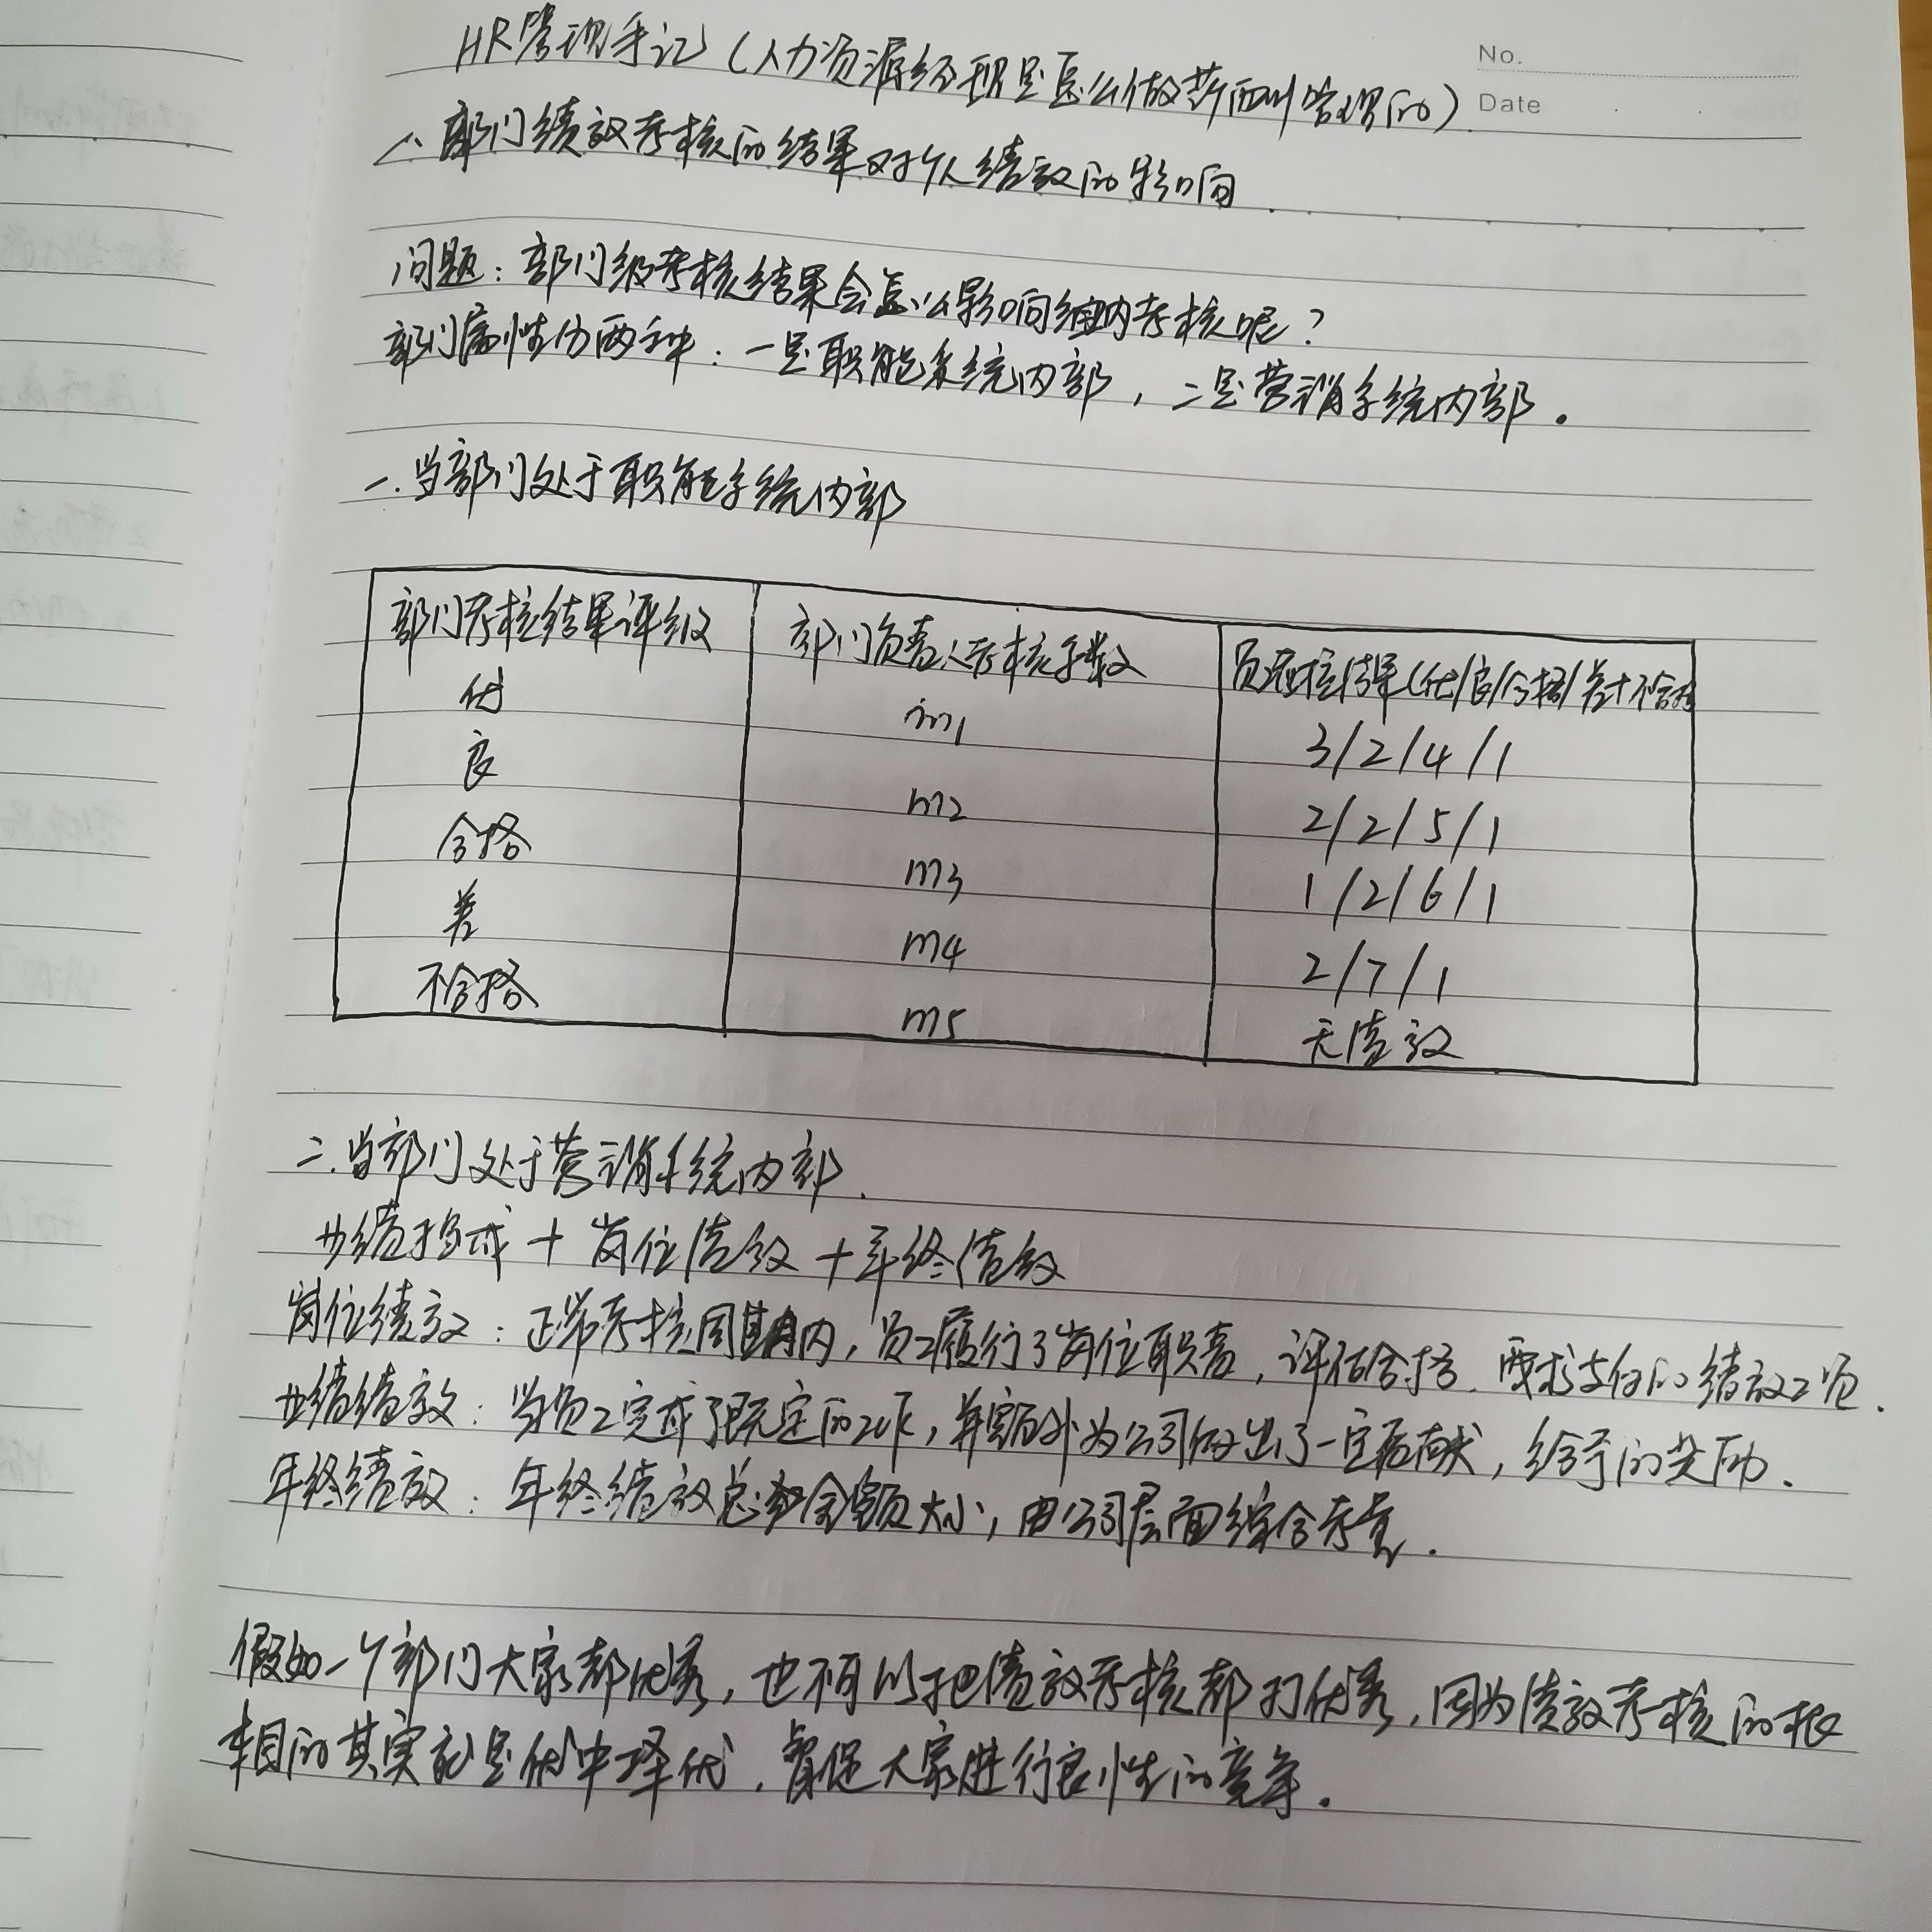 No.
Date
HR管理手记(人力资源经理是怎么做薪酬管理的)
一、部门绩效考核的结果对个人绩效的影响
问题:部门级考核结果会怎么影响组内考核呢?
部门属性分两种:一是职能系统内部,二是营销系统内部。
一.当部门处于职能系统内部
部门考核结果评级 部门负责人考核系数 员工考核结果(优/良/合格/差+不合格
优 m1 3/2/4/1
良 m2 2/2/5/1
合格 m3 1/2/6/1
差 m4 2/7/1
不合格 m5 无绩效
二.当部门处于营销系统内部.
业绩提成+岗位绩效+年终绩效
岗位绩效:正常考核周期内,员工履行了岗位职责,评估合格.要求支付的绩效工资.
业绩绩效:当员工完成了既定的工作,并额外为公司做出了一定贡献,给予的奖励.
年终绩效:年终绩效总金额大小,由公司层面综合考量.
假如一个部门大家都优秀,也不可以把绩效考核都打优秀,因为绩效考核的根
本目的其实就是优中择优,督促大家进行良性的竞争.